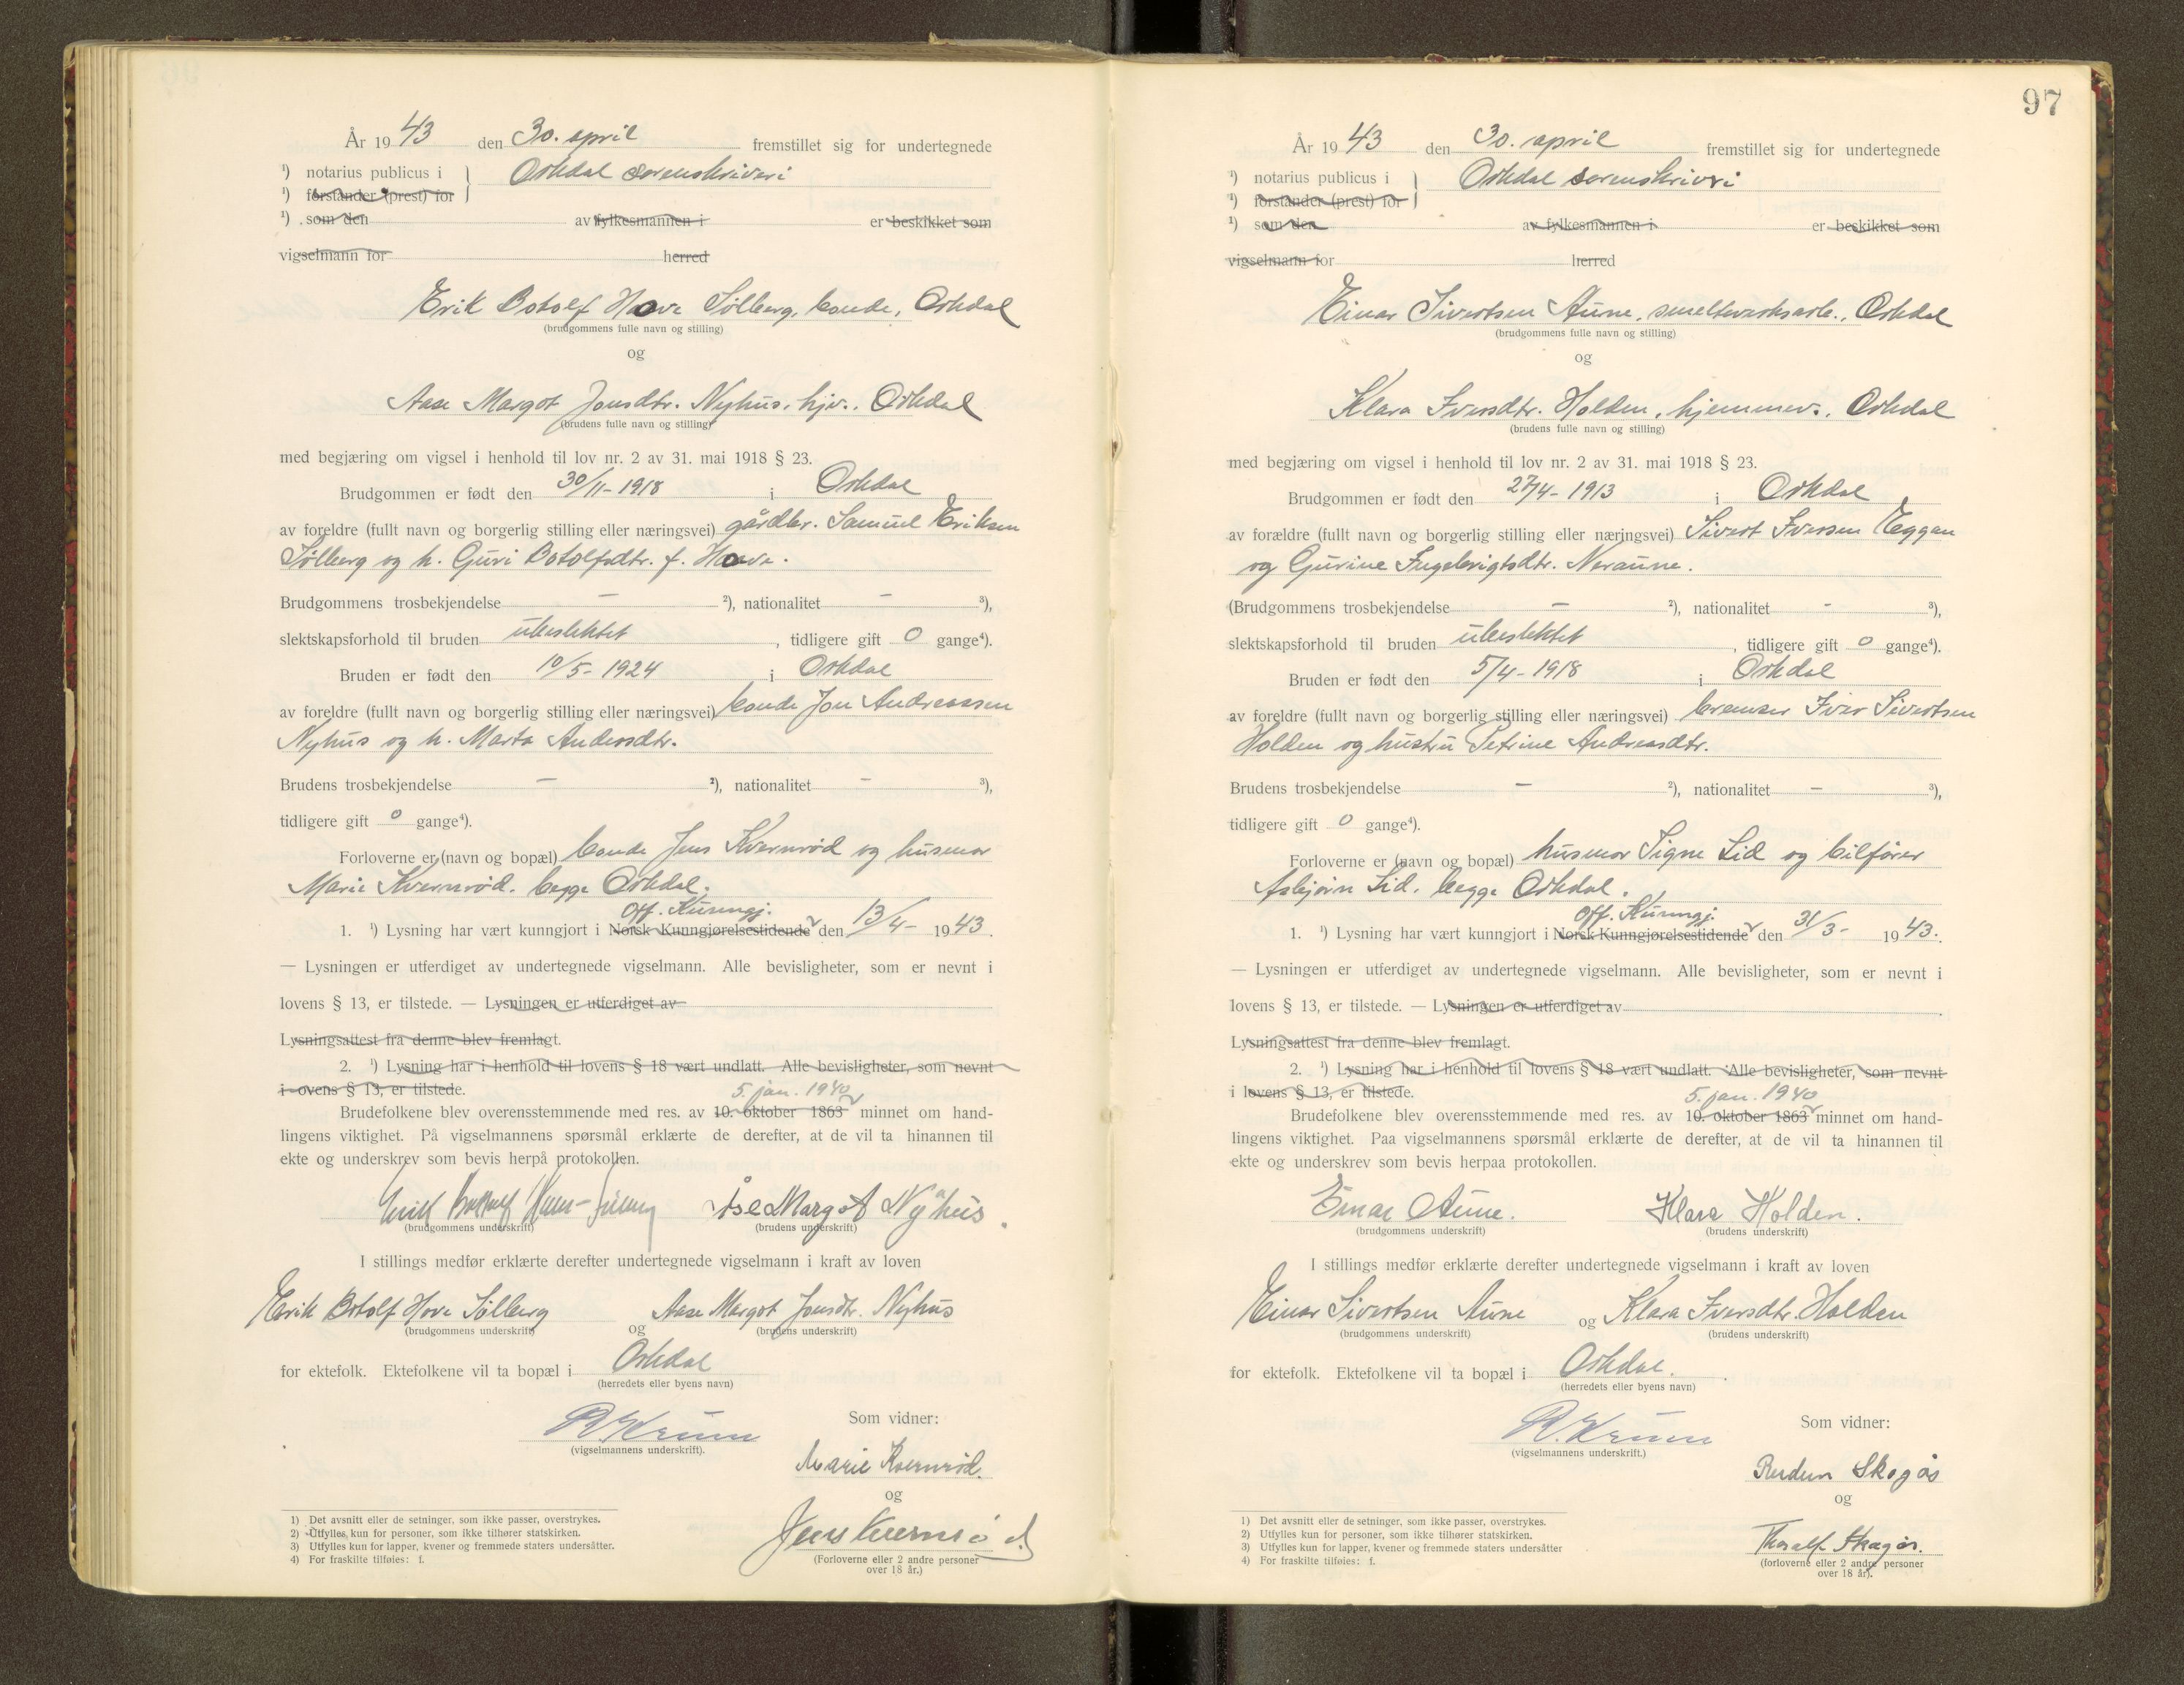 År 1943 den 30. april fremstillet sig for undertegnede
¹) notarius publicus i Orkdal sorenskriveri
¹) forstander (prest) for
¹) som den av fylkesmannen i er beskikket som
vigselmann for herred
Erik Botolf Hove Sølberg, bonde, Orkdal
(brudgommens fulle navn og stilling)
og
Aase Margot Jonsdtr. Nyhus, hjv., Orkdal
(brudens fulle navn og stilling)
med begjæring om vigsel i henhold til lov nr. 2 av 31. mai 1918 § 23.
Brudgommen er født den 30/11-1918 i Orkdal
av foreldre (fullt navn og borgerlig stilling eller næringsvei) gårdbr. Samuel Eriksen
Sølberg og h. Guri Botolfsdtr. f. Hove.
Brudgommens trosbekjendelse — ²), nationalitet — ³),
slektskapsforhold til bruden ubeslektet, tidligere gift 0 gange⁴).
Bruden er født den 10/5-1924 i Orkdal
av foreldre (fullt navn og borgerlig stilling eller næringsvei) bonde Jon Andreassen
Nyhus og h. Marta Andersdtr.
Brudens trosbekjendelse — ²), nationalitet — ³),
tidligere gift 0 gange⁴).
Forloverne er (navn og bopæl) bonde Jens Kvernrød og husmor
Marie Kvernrød, begge Orkdal.
Off. Kunngj.
1. ¹) Lysning har vært kunngjort i Norsk Kunngjørelsestidende den 13/4- 1943.
— Lysningen er utferdiget av undertegnede vigselmann. Alle bevisligheter, som er nevnt i
lovens § 13, er tilstede. — Lysningen er utferdiget av
Lysningsattest fra denne blev fremlagt.
2. ¹) Lysning har i henhold til lovens § 18 vært undlatt. Alle bevisligheter, som nevnt
i ovens § 13, er tilstede.
5. jan. 1940
Brudefolkene blev overensstemmende med res. av 10. oktober 1863 minnet om hand-
lingens viktighet. På vigselmannens spørsmål erklærte de derefter, at de vil ta hinannen til
ekte og underskrev som bevis herpå protokollen.
Erik Botolf Hove-Sølberg Åse Margot Nyhus.
(brudgommens underskrift) (brudens underskrift)
I stillings medfør erklærte derefter undertegnede vigselmann i kraft av loven
Erik Botolf Hove Sølberg og Aase Margot Jonsdtr. Nyhus
(brudgommens underskrift) (brudens underskrift)
for ektefolk. Ektefolkene vil ta bopæl i Orkdal
(herredets eller byens navn)
Som vidner:
(vigselmannens underskrift).
Marie Kvernrød.
og
Jens Kvernrød
(Forloverne eller 2 andre personer
over 18 år.)
1) Det avsnitt eller de setninger, som ikke passer, overstrykes.
2) Utfylles kun for personer, som ikke tilhører statskirken.
3) Utfylles kun for lapper, kvener og fremmede staters undersåtter.
4) For fraskilte tilføies: f.
97
År 1943 den 30. april fremstillet sig for undertegnede
¹) notarius publicus i Orkdal sorenskriveri
¹) forstander (prest) for
¹) som den av fylkesmannen i er beskikket som
vigselmann for herred
Einar Sivertsen Aune, smelteverksarb., Orkdal
(brudgommens fulle navn og stilling)
og
Klara Iversdtr. Holden, hjemmev., Orkdal
(brudens fulle navn og stilling)
med begjæring om vigsel i henhold til lov nr. 2 av 31. mai 1918 § 23.
Brudgommen er født den 27/4-1913 i Orkdal
av forældre (fullt navn og borgerlig stilling eller næringsvei) Sivert Iversen Eggan
og Gurine Ingebrigtsdtr. Neraune.
(Brudgommens trosbekjendelse — ²), nationalitet - ³),
slektskapsforhold til bruden ubeslektet, tidligere gift 0 gange⁴).
Bruden er født den 5/4-1918 i Orkdal
av foreldre (fullt navn og borgerlig stilling eller næringsvei) bremser Iver Sivertsen
Holden og hustru Petrine Andreasdtr.
Brudens trosbekjendelse — ²), nationalitet — ³),
tidligere gift 0 gange⁴).
Forloverne er (navn og bopæl) husmor Signe Lid og bilfører
Asbjørn Lid, begge Orkdal.
Off. Kunngj.
1. ¹) Lysning har vært kunngjort i Norsk Kunngjørelsestidende den 31/3- 1943.
— Lysningen er utferdiget av undertegnede vigselmann. Alle bevisligheter, som er nevnt i
lovens § 13, er tilstede. — Lysningen er utferdiget av
Lysningsattest fra denne blev fremlagt.
2. ¹) Lysning har i henhold til lovens § 18 vært undlatt. Alle bevisligheter, som nevnt
i lovens § 13, er tilstede.
5. jan. 1940
Brudefolkene blev overensstemmende med res. av 10. oktober 1863 minnet om hand-
lingens viktighet. Paa vigselmannens spørsmål erklærte de derefter, at de vil ta hinannen til
ekte og underskrev som bevis herpaa protokollen.
Einar Aune. Klara Holden.
(brudgommens underskrift) (brudens underskrift)
I stillings medfør erklærte derefter undertegnede vigselmann i kraft av loven
Einar Sivertsen Aune og Klara Iversdtr. Holden
(brudgommens underskrift) (brudens underskrift)
for ektefolk. Ektefolkene vil ta bopæl i Orkdal.
(herredets eller byens navn)
Som vidner:
(vigselmannens underskrift.)
Skogås
og
Thoralf Skogås.
(forloverne eller 2 andre personer
over 18 år).
1) Det avsnitt eller de setninger, som ikke passer, overstrykes.
2) Utfylles kun for personer, som ikke tilhører statskirken.
3) Utfylles kun for lapper, kvener og fremmede staters undersåtter
4) For fraskilte tilføies: f.